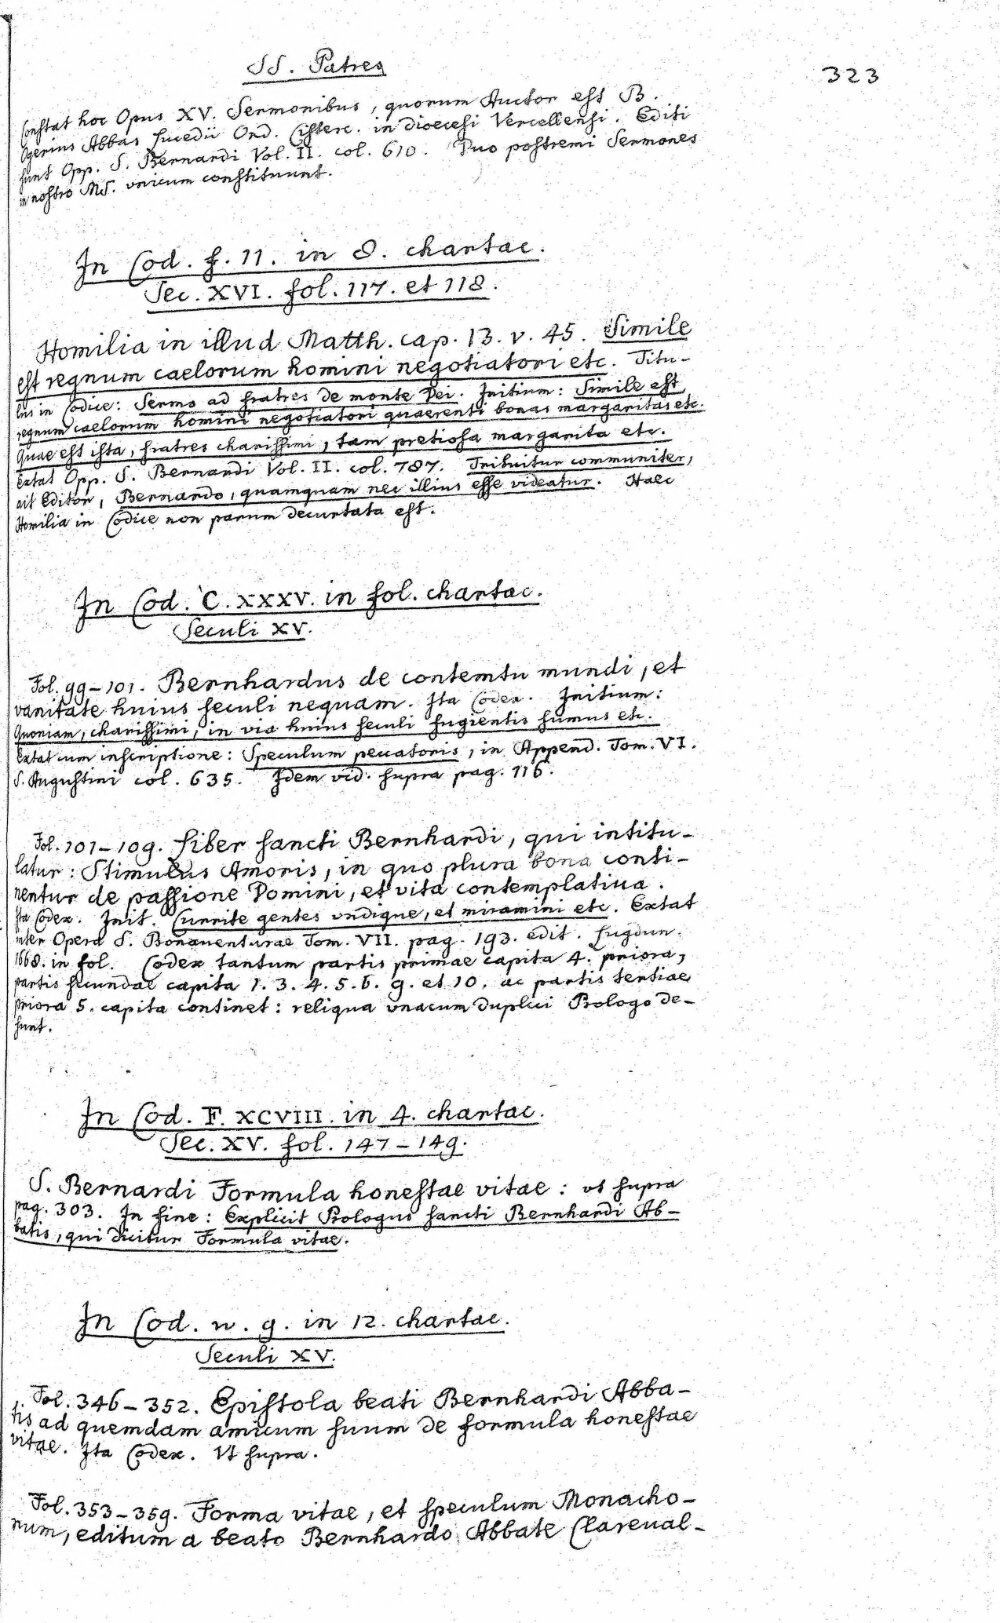 SS. Patres
323
Constat hoc Opus XV. Sermonibus, quorum Auctor est B.
Ogerius Abbas Lucedii Ord. Cisterc. in dioecesi Vercellensi. Editi
sunt Opp. S. Bernardi Vol. II. col. 610. Duo postremi Sermones
in nostro MS. unicum constituunt.
In Cod. f. 11. in 8. chartac.
Sec. XVI. fol. 117. et 118.
Homilia in illud Matth. cap. 13. v. 45. Simile
est regnum caelorum homini negotiatori etc. Titu-
lus in Codice: Sermo ad fratres de monte Dei. Initium: Simile est
regnum caelorum homini negotiatori quaerenti bonas margaritas etc.
Quae est ista, fratres charissimi, tam pretiosa margarita etc.
Extat Opp. S. Bernardi Vol. II. col. 787. Tribuitur communiter,
ait Editor, Bernardo, quamquam nec illius esse videatur. Haec
Homilia in Codice non parum decurtata est.
In Cod. C. XXXV. in fol. chartac.
Seculi XV.
Fol. 99-101. Bernhardus de contemtu mundi, et
vanitate huius seculi nequam. Ita Codex. Initium:
Quoniam, charissimi, in via huius seculi fugientis sumus etc.
Extat cum inscriptione: Speculum peccatoris, in Append. Tom. VI.
S. Augustini col. 635. Idem vid. supra pag. 116.
Fol. 101-109. Liber sancti Bernhardi, qui intitu-
latur: Stimulus Amoris, in quo plura bona conti-
nentur de passione Domini, et vita contemplativa.
Ita Codex. Init. Currite gentes undique, et miramini etc. Extat
inter Opera S. Bonaventurae Tom. VII. pag. 193. edit. Lugdun.
1668. in fol. Codex tantum partis primae capita 4. priora,
partis secundae capita 1. 3. 4. 5. 6. 9. et 10. ac partis tertiae
priora 5. capita continet: reliqua unacum duplici Prologo de-
sunt.
In Cod. F. XCVIII. in 4. chartac.
Sec. XV. fol. 147-149.
S. Bernardi Formula honestae vitae: ut supra
pag. 303. In fine: Explicit Prologus sancti Bernhardi Ab-
batis, qui dicitur Formula vitae.
In Cod. n. 9. in 12. chartac.
Seculi XV.
Fol. 346-352. Epistola beati Bernhardi Abba-
tis ad quemdam amicum suum de formula honestae
vitae. Ita Codex. Ut supra.
Fol. 353-359. Forma vitae, et speculum Monacho-
rum, editum a beato Bernhardo Abbate Clareual-